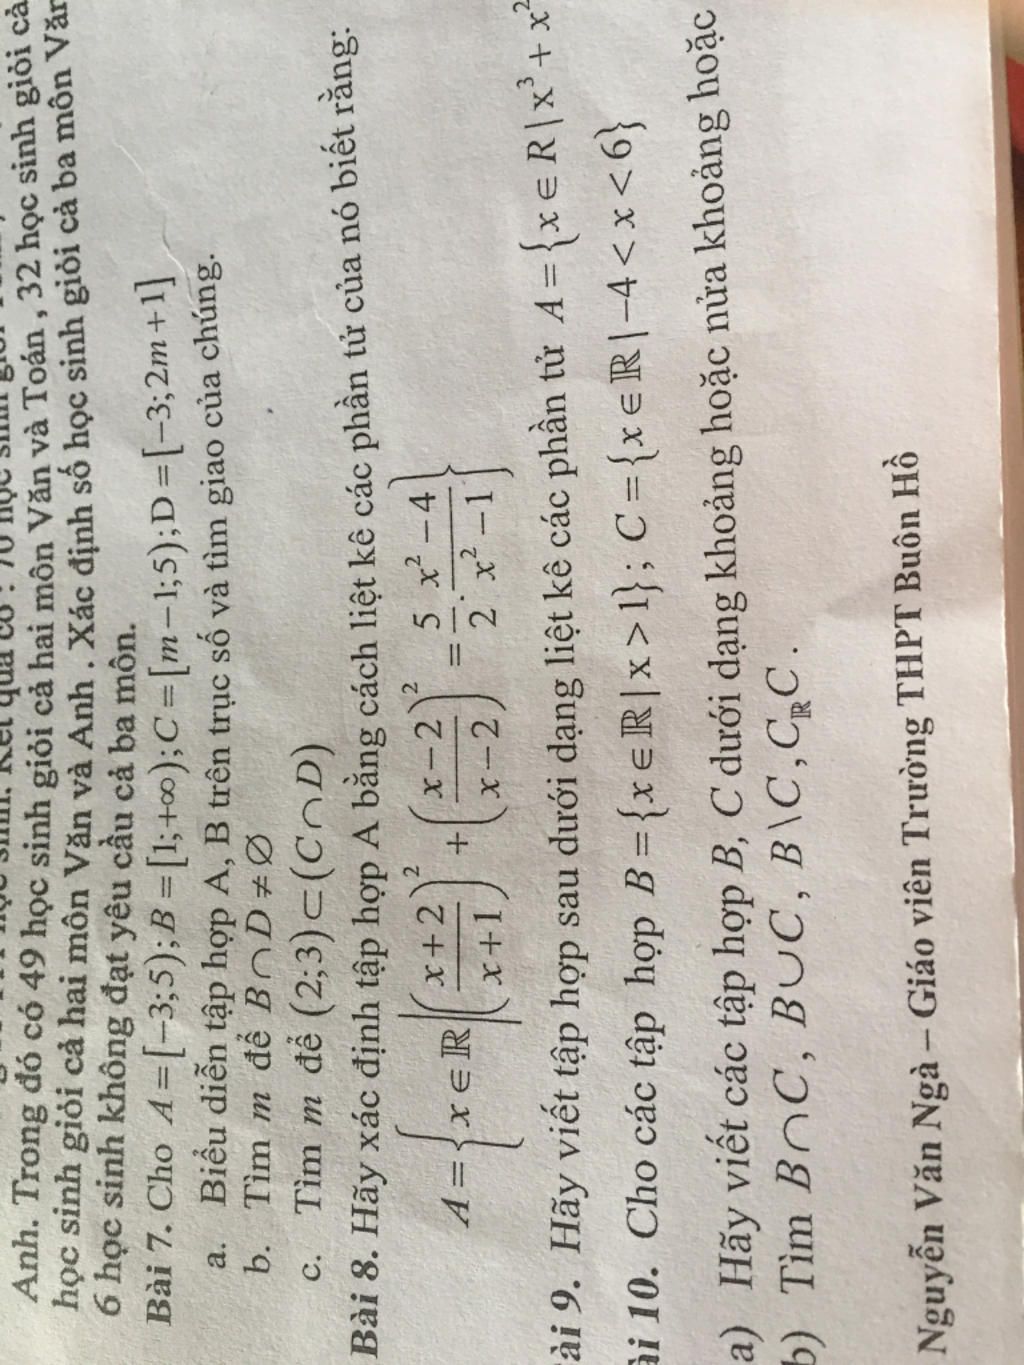 Anh. Trong đó có 49 học sinh giỏi cả hai môn Văn và Toán , 32 học sinh giỏi cả
học sinh giỏi cả hai môn Văn và Anh . Xác định số học sinh giỏi cả ba môn Văn
6 học sinh không đạt yêu cầu cả ba môn.
Bài 7. Cho A = [−3;5); B = [1;+∞); C = [m−1;5); D = [−3;2m+1]
a. Biểu diễn tập hợp A, B trên trục số và tìm giao của chúng.
b. Tìm m để B∩D ≠ ∅
c. Tìm m để (2;3) ⊂ (C∩D)
Bài 8. Hãy xác định tập hợp A bằng cách liệt kê các phần tử của nó biết rằng:
A = {x ∈ ℝ | ((x+2)/(x+1))² + ((x−2)/(x−2))² = 5/2 . (x²−4)/(x²−1)}
ài 9. Hãy viết tập hợp sau dưới dạng liệt kê các phần tử A = {x ∈ R | x³ + x²
ài 10. Cho các tập hợp B = {x ∈ ℝ | x > 1}; C = {x ∈ ℝ | −4 < x < 6}
a) Hãy viết các tập hợp B, C dưới dạng khoảng hoặc nửa khoảng hoặc
b) Tìm B∩C , B∪C , B \ C , C_ℝC .
Nguyễn Văn Ngà – Giáo viên Trường THPT Buôn Hồ